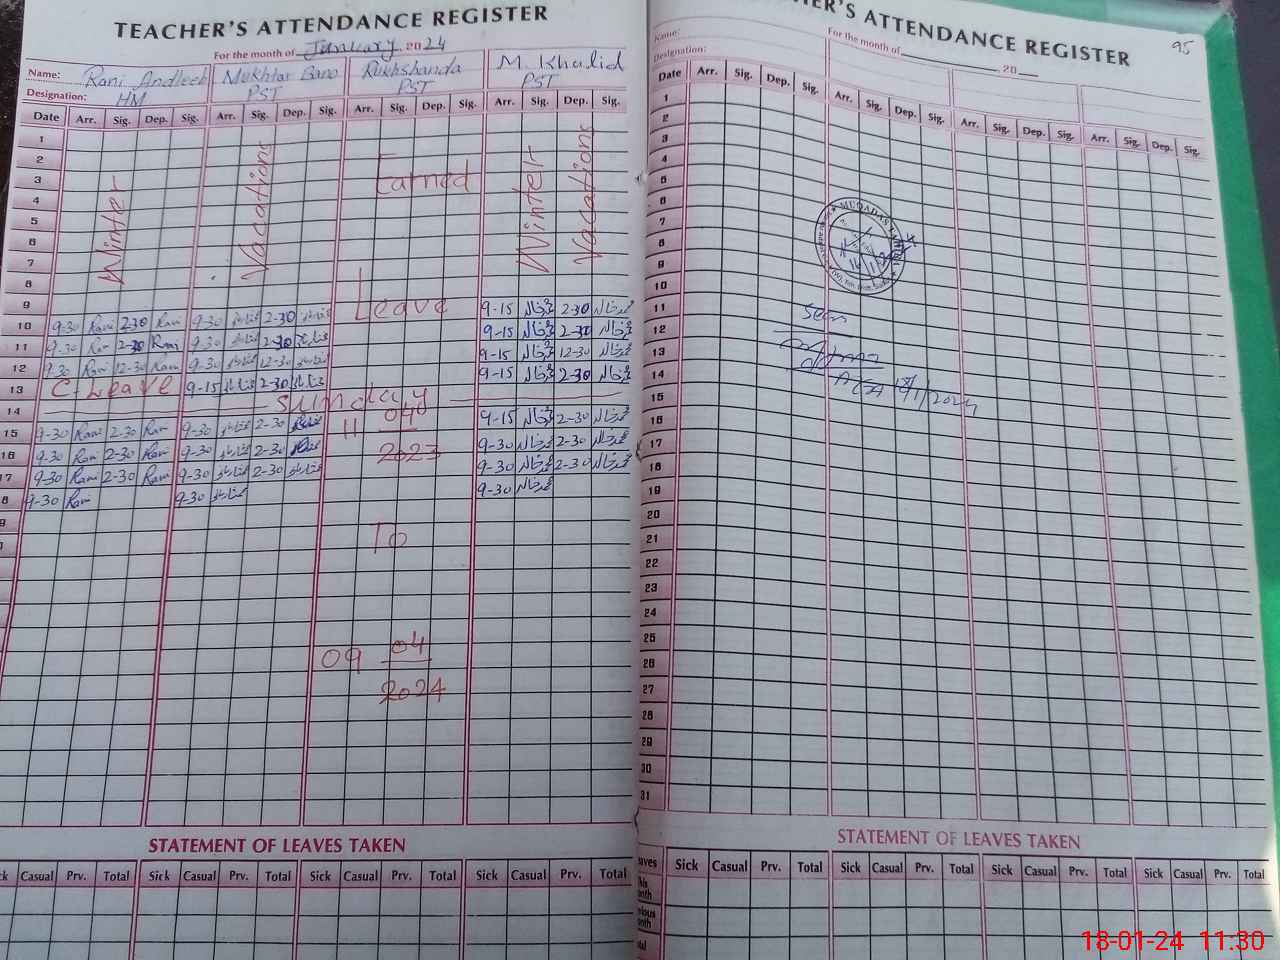 TEACHER'S ATTENDANCE REGISTER
For the month of January 2024
Name: Rani Andleeb Mukhtar Bano Rukhshanda M. Khalid
Designation: HM PST PST PST
Date Arr. Sig. Dep. Sig. Arr. Sig. Dep. Sig. Arr. Sig. Dep. Sig. Arr. Sig. Dep. Sig.
1
2
3
4
5
6
7
8
Winter Vacations Earned Winter Vacations
9 Leave 9-15 محمد خالد 2-30 محمد خالد
10 9-30 Rani 2-30 Rani 9-30 2-30 9-15 محمد خالد 2-30 محمد خالد
11 9-30 Rani 2-30 Rani 9-30 2-30 9-15 محمد خالد 12-30 محمد خالد
12 9-30 Rani 12-30 Rani 9-30 12-30 9-15 محمد خالد 2-30 محمد خالد
13 C-Leave 9-15 2-30
14 Sunday
15 9-30 Rani 2-30 Rani 9-30 2-30 11 04 9-15 محمد خالد 2-30 محمد خالد
16 9-30 Rani 2-30 Rani 9-30 2-30 2023 9-30 محمد خالد 2-30 محمد خالد
17 9-30 Rani 2-30 Rani 9-30 2-30 9-30 محمد خالد 2-30 محمد خالد
8 9-30 Rani 9-30 9-30 محمد خالد
To
09 04
2024
STATEMENT OF LEAVES TAKEN
ck Casual Prv. Total Sick Casual Prv. Total Sick Casual Prv. Total Sick Casual Prv. Total
ER'S ATTENDANCE REGISTER
95
For the month of 20
Name:
Designation:
Date Arr. Sig. Dep. Sig. Arr. Sig. Dep. Sig. Arr. Sig. Dep. Sig. Arr. Sig. Dep. Sig.
1
2
3
4
5
6
7
8
9
10
11
12
13
14
15
16
17
18
19
20
21
22
23
24
25
26
27
28
29
30
31
Seen
18/1/2024
STATEMENT OF LEAVES TAKEN
eaves Sick Casual Prv. Total Sick Casual Prv. Total Sick Casual Prv. Total Sick Casual Prv. Total
This
month
vious
onth
otal
18-01-24 11:30